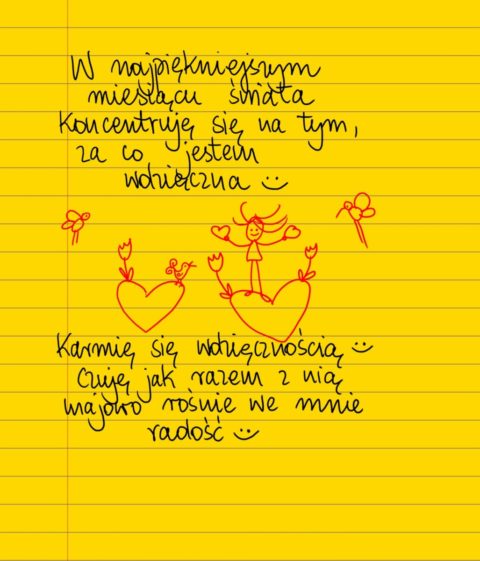 W najpiękniejszym
miesiącu świata
Koncentruję się na tym,
za co jestem
wdzięczna :)
Karmię się wdzięcznością :)
Czuję jak razem z nią
majowo rośnie we mnie
radość :)